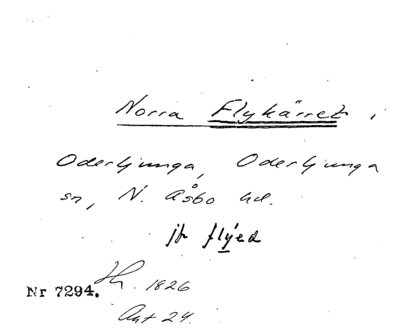 Norra Flykärret,
Oderljunga, Oderljunga
sn, N. Åsbo hd.
jfr flyed
Nr 7294. Lh. 1826
Akt 24.